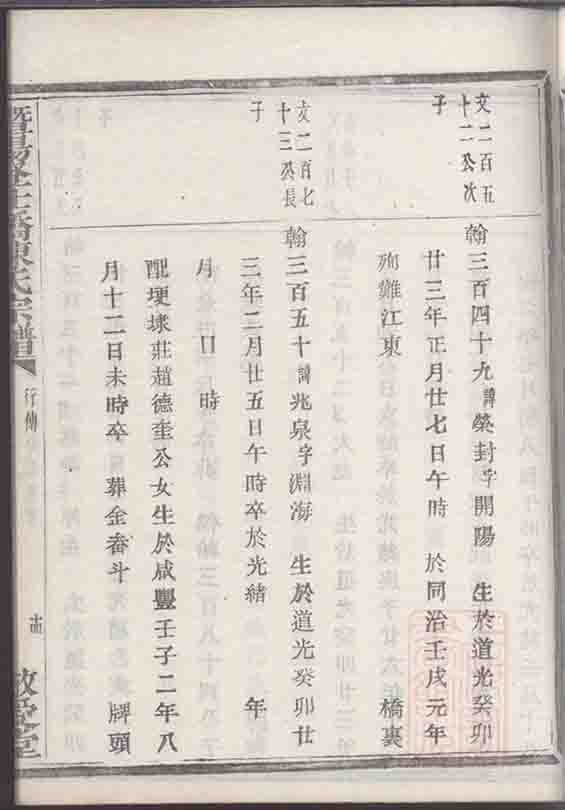 文二百五
十二公次
子
翰三百四十九諱榮封字開陽 生於道光癸卯
廿三年正月廿七日午時 於同治壬戌元年
殉難江東 橋裏
文二百七
十三公長
子
翰三百五十諱兆泉字淵海 生於道光癸卯廿
三年二月廿五日午時卒於光緒 年
月 日 時
配埂埭莊趙德奎公女生於咸豐壬子二年八
月十二日未時卒 葬金畚斗 牌頭
暨陽 橋陳氏宗譜
行傳
敬愛堂